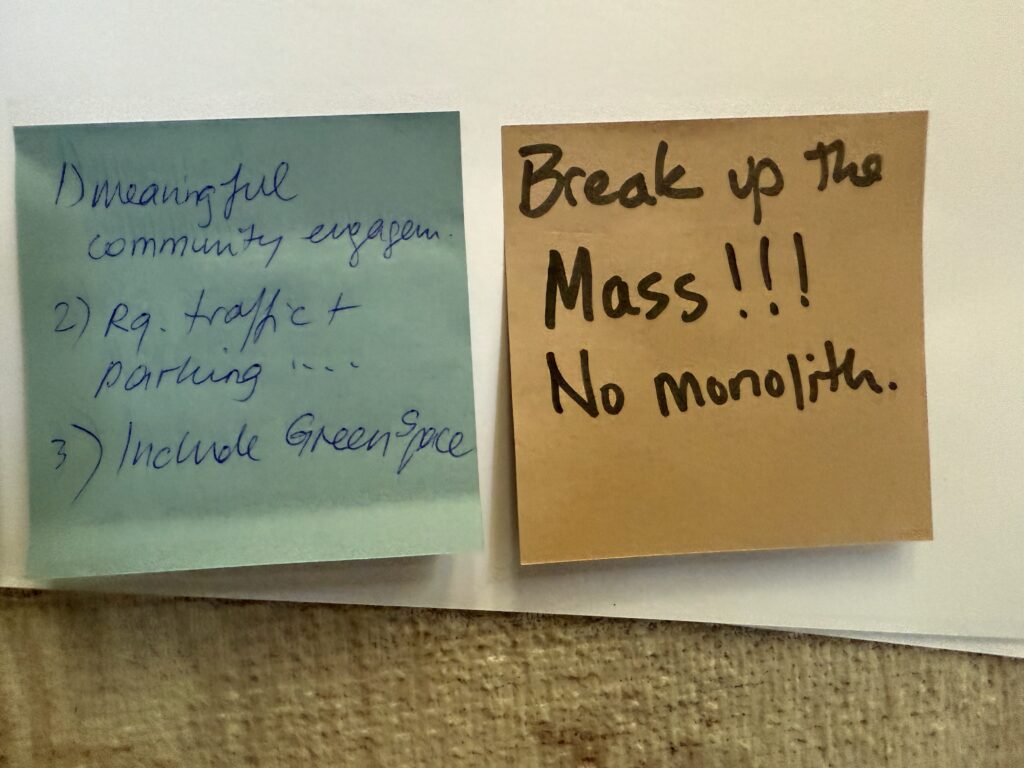 1) meaningful
community engagem.
2) Rq. traffic +
parking ....
3) Include GreenSpace
Break up the
Mass!!!
No monolith.